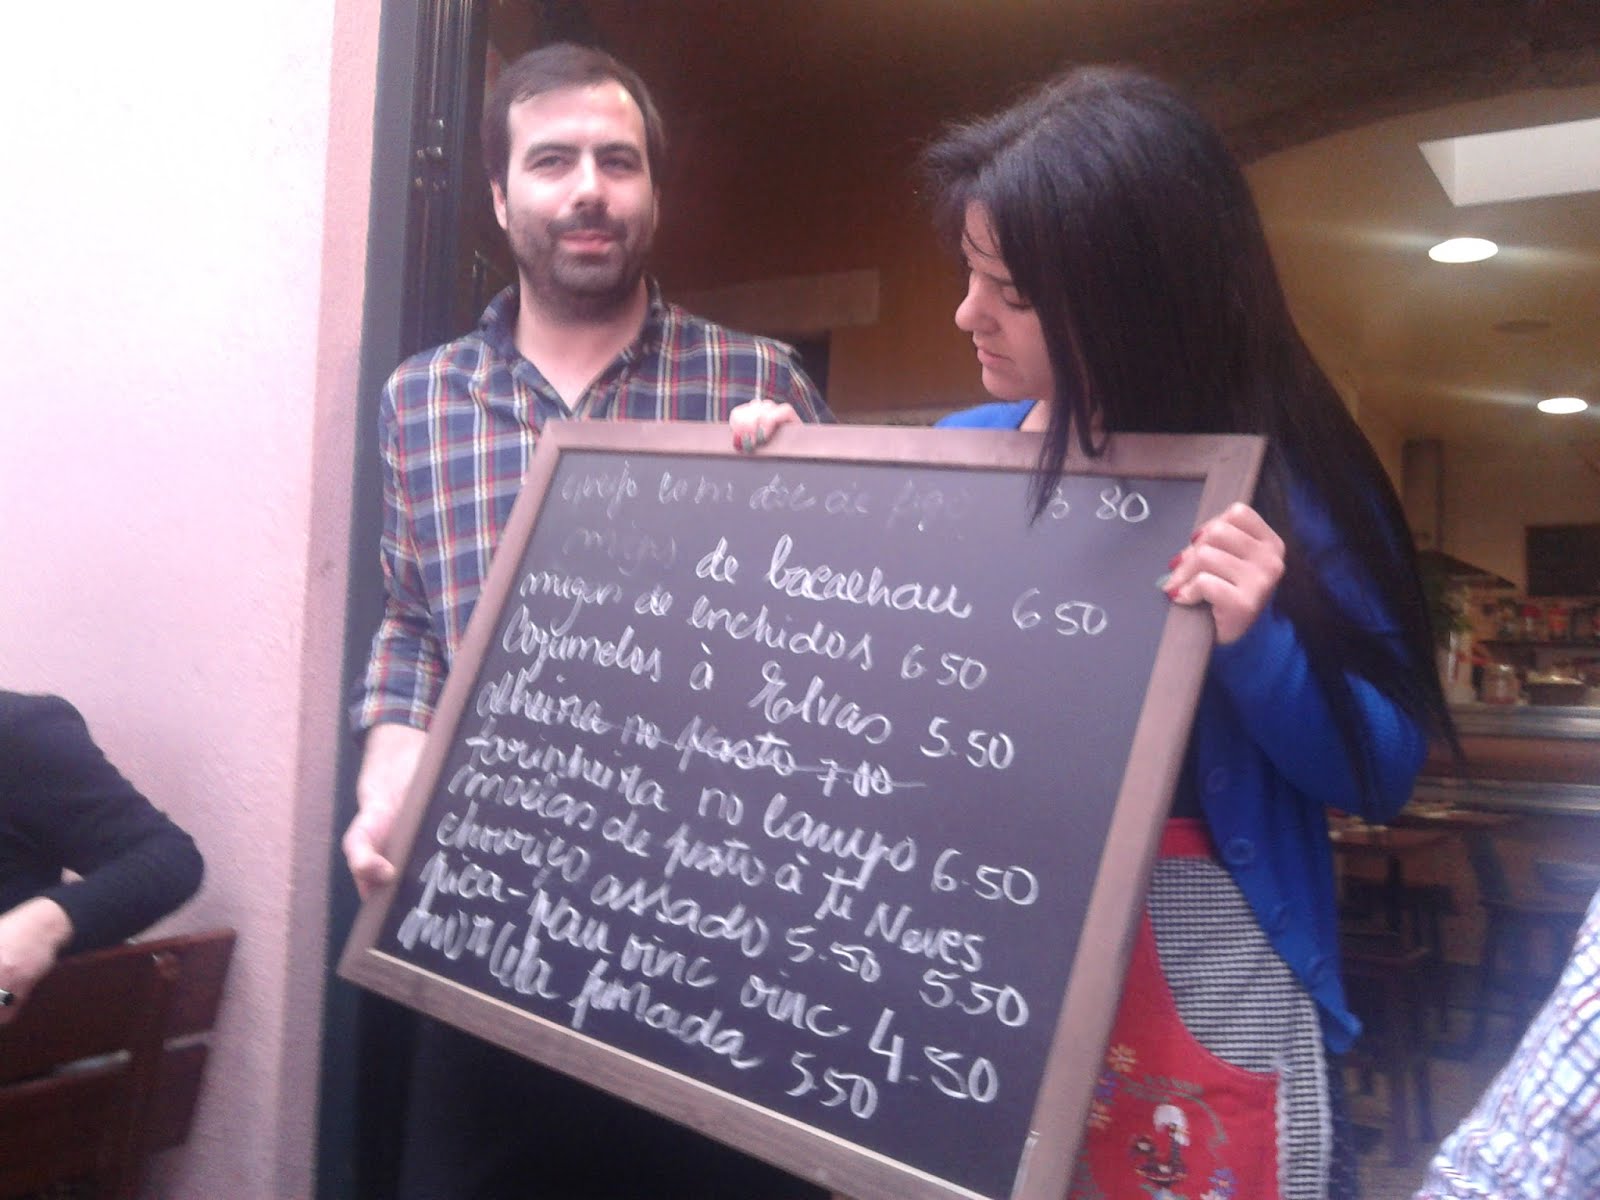 queijo com doce de figo 3 80
migas de bacalhau 6 50
migas de enchidos 6 50
Cogumelos à Elvas 5.50
alheira no pasto 7 00
farinheira no campo 6.50
molejas de porto à Ti Neves 5.50
chouriço assado 5.50
pica-pau oinc oinc 4.50
morcela fumada 5.50